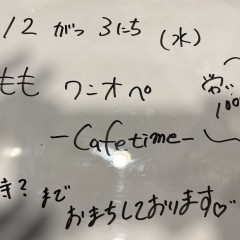 12 がつ 3にち (水)
もも ワンオペ
-Cafetime-
時? まで
おまちしております♡